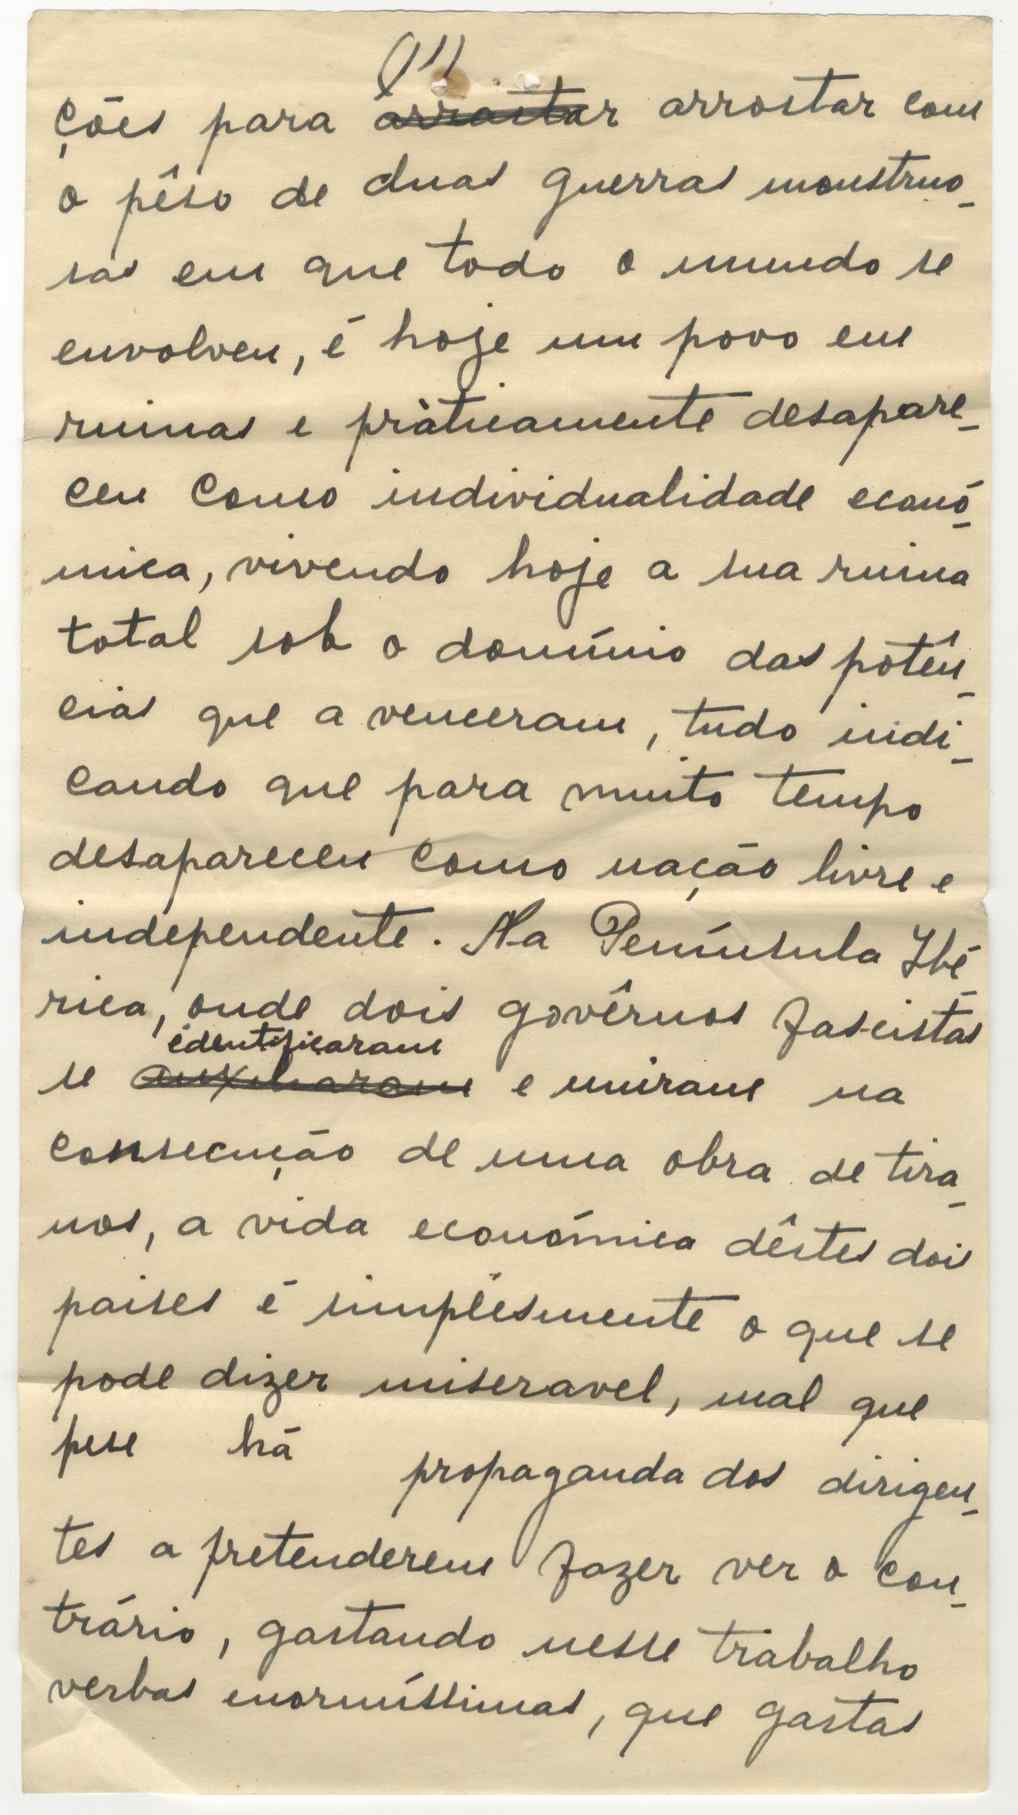 ções para arrastar arrostar com
o pêso de duas guerras monstruo-
sas em que todo o mundo se
envolveu, é hoje um povo em
ruinas e pràticamente desapare-
ceu como individualidade econó-
mica, vivendo hoje a sua ruina
total sob o domínio das potên-
cias que a venceram, tudo indi-
cando que para muito tempo
desapareceu como nação livre e
independente. Na Península Ibé-
rica, onde dois govêrnos fascistas
identificaram
se auxiliaram e uniram na
consecução de uma obra de tira-
nos, a vida económica dêstes dois
paises é simplêsmente o que se
pode dizer miseravel, mal que
pese há propaganda dos dirigen-
tes a pretenderem fazer ver o con-
trário, gastando nesse trabalho
verbas enormíssimas, que gastas